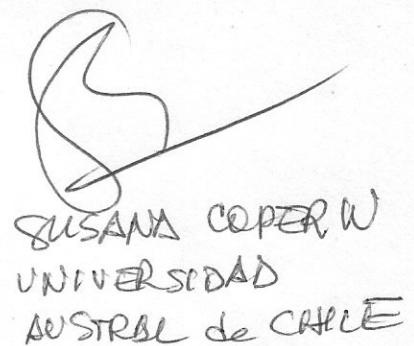 SUSANA COPER W
UNIVERSIDAD
AUSTRAL de CHILE